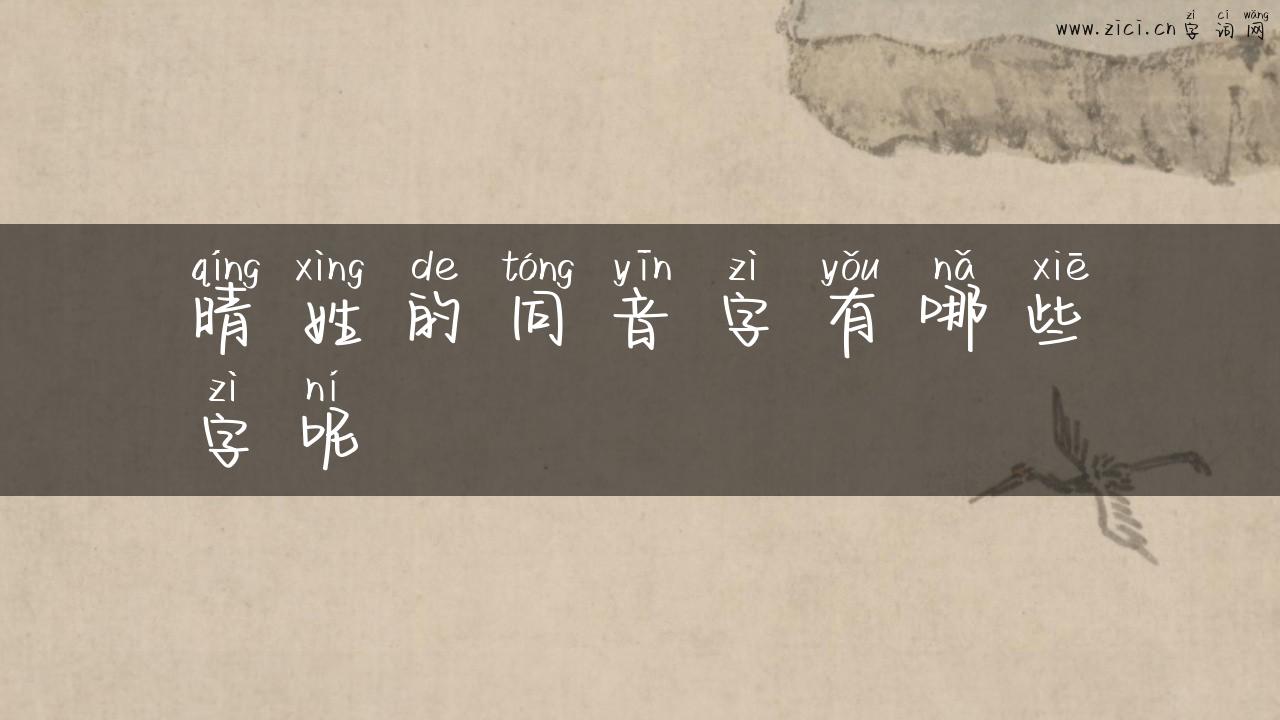 zì cí wǎng
www.zici.cn 字词网
qíng xìng de tóng yīn zì yǒu nǎ xiē
晴姓的同音字有哪些
zì ní
字呢